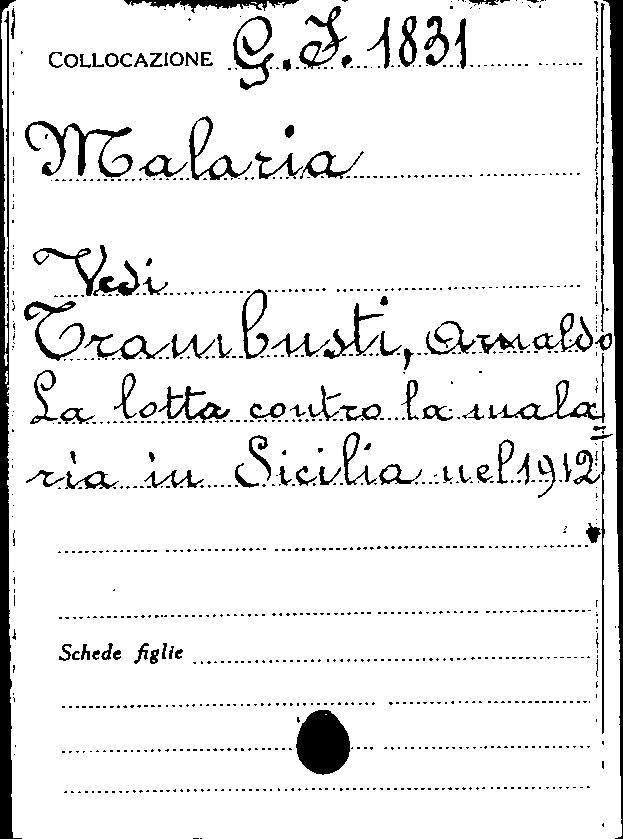 COLLOCAZIONE G. I. 1831
Malaria
Vedi
Trambusti, Arnaldo
La lotta contro la mala=
ria in Sicilia nel 1912
Schede figlie